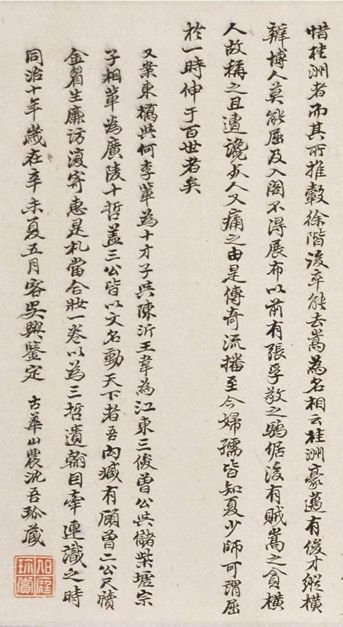 惜桂洲者而其所推轂徐階後卒能去嵩為名相云桂洲豪邁有俊才縱橫
辯博人莫能屈及入閣不得展布以前有張孚敬之驕倨後有賊嵩之貪橫
人故稱之且遭讒死人又痛之由是傳奇流播至今婦孺皆知夏少師可謂屈
於一時伸于百世者矣
又案東橋與何李輩為十才子與陳沂王韋為江東三俊曾公與儲柴墟宗
子相輩為廣陵十哲蓋三公皆以文名動天下者吾内臧有顧曾二公尺牘
金眉生廉訪復寄惠是札當合妝一卷以為三哲遺翰因牽連識之時
同治十年歲在辛未夏五月客吳興鑒定 古華山農沈吾 藏